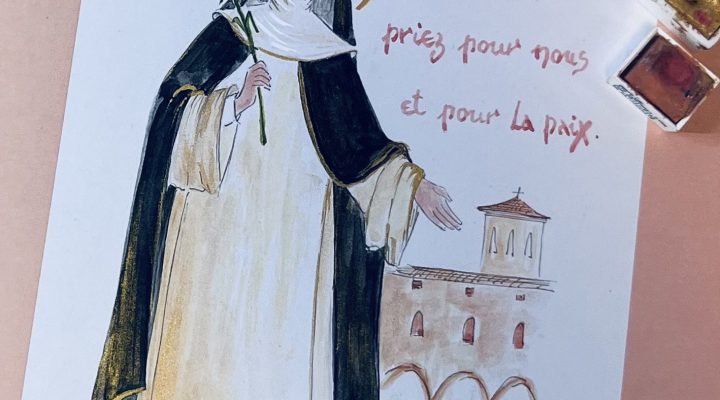 priez pour nous
et pour la paix.